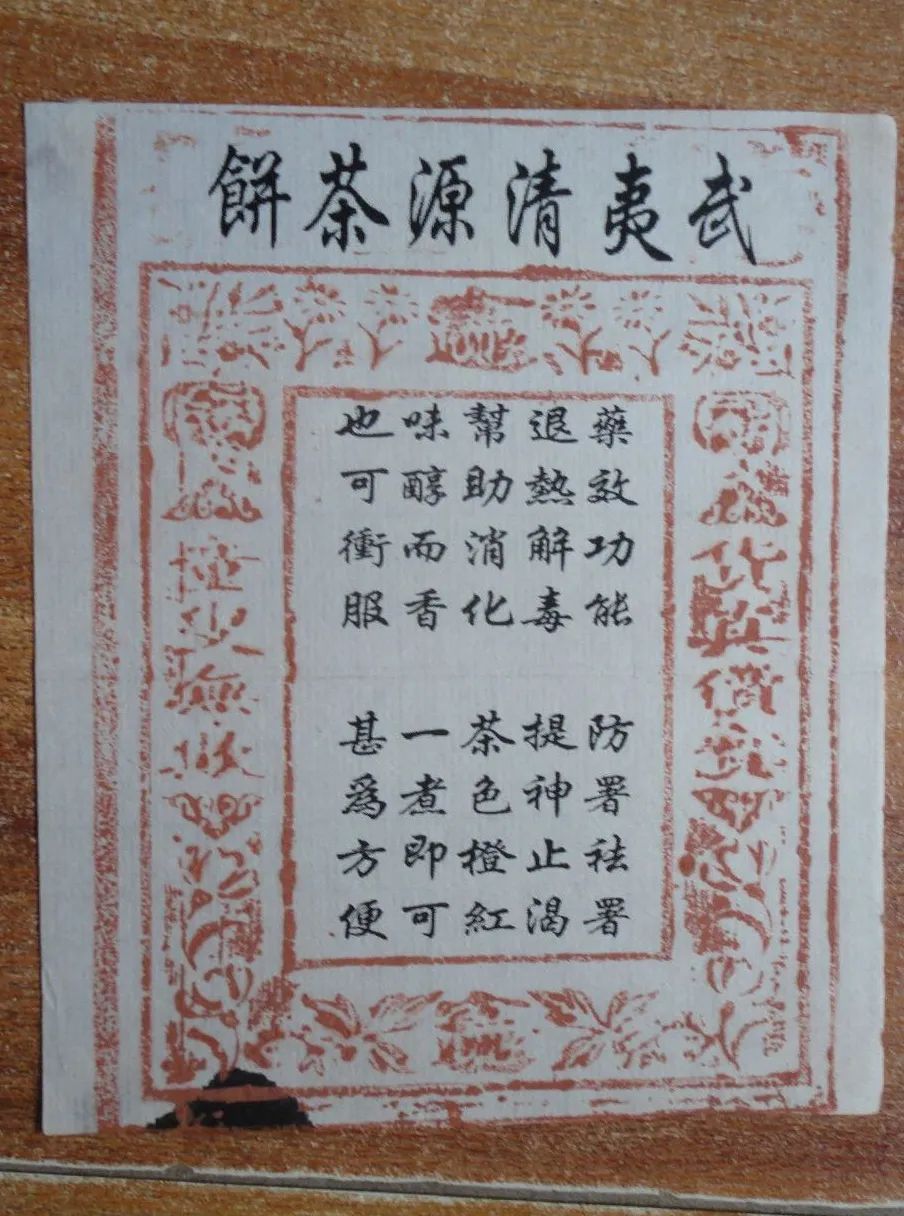 武夷清源茶餅
藥效功能 防署祛署
退熱解毒 提神止渴
幫助消化 茶色橙紅
味醇而香 一煮即可
也可衝服 甚爲方便